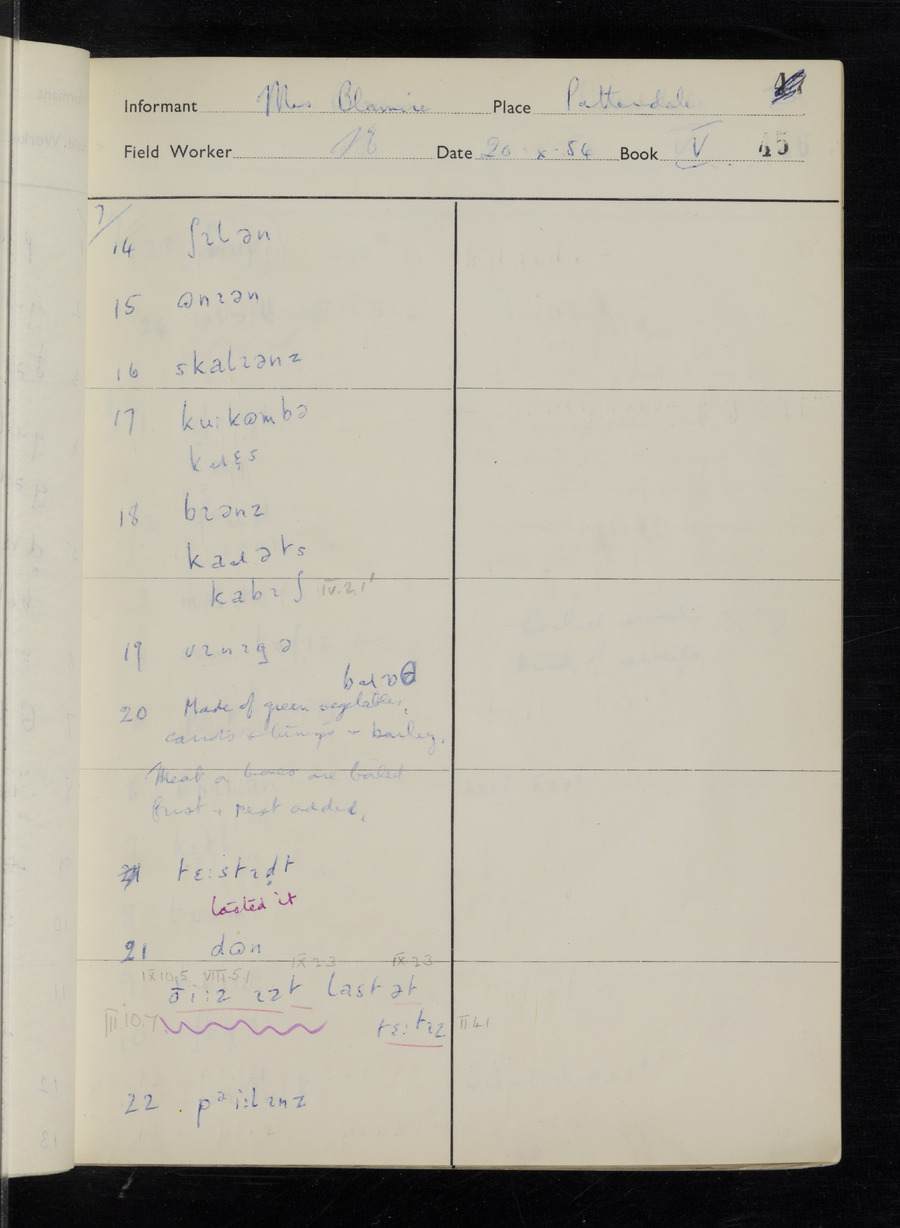 Informant Mrs Blamire Place Patterdale
Field Worker Date 20 · x · 54 Book V 45
7/
14 ʃɪlən
15 ɵnɪən
16 skalɪənz
17 ku:kɵmbə
18 bɪənz
kaɹəts
kabɪʃ IV.2.1'
19 vɪnɪgə
20 Made of green vegetables,
carrots + turnips + barley.
Meat or bones are boiled
first + rest added.
tɛ:stɪd̥t
tasted it
21 dɵn
IX.2.3 IX.2.3
IX.10.5 VIII.5.1
last ət
III.10.7 II.4.1
22 pᵊi:lɪnz